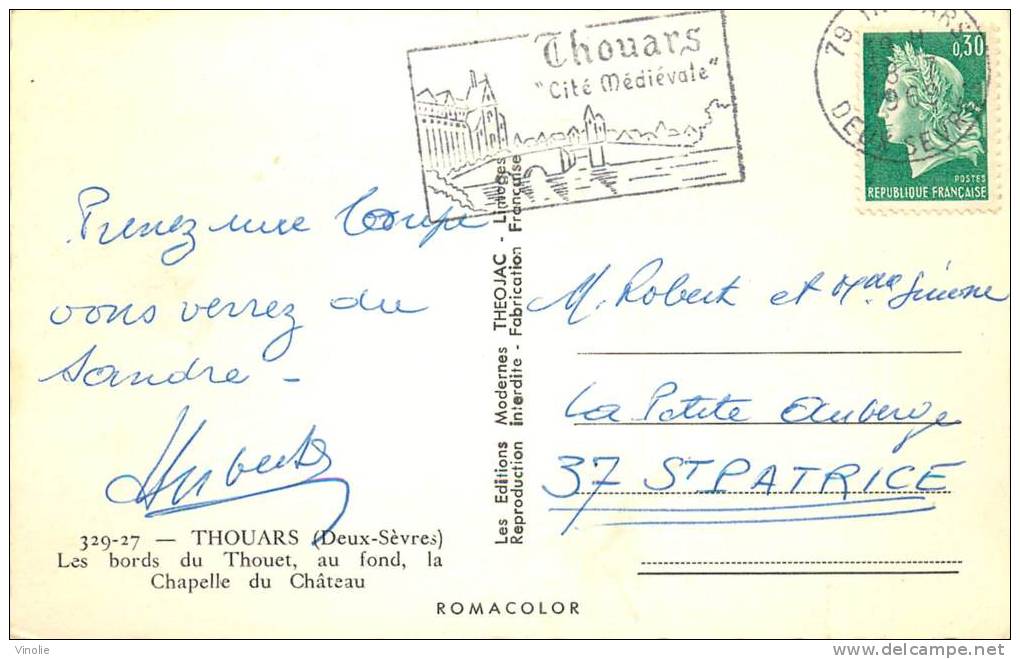 Thouars
"Cité Médiévale"
79 THOUARS
DEUX SEVRES
0,30
POSTES
REPUBLIQUE FRANÇAISE
Prenez une loupe
vous verrez du
sandre -
Hubert
329-27 — THOUARS (Deux-Sèvres)
Les bords du Thouet, au fond, la
Chapelle du Château
Les Editions Modernes THEOJAC - Limoges
Reproduction interdite - Fabrication Française
M. Robert et Mme Simone
La Petite Auberge
37 ST PATRICE
ROMACOLOR
Vinolie
www.delcampe.net